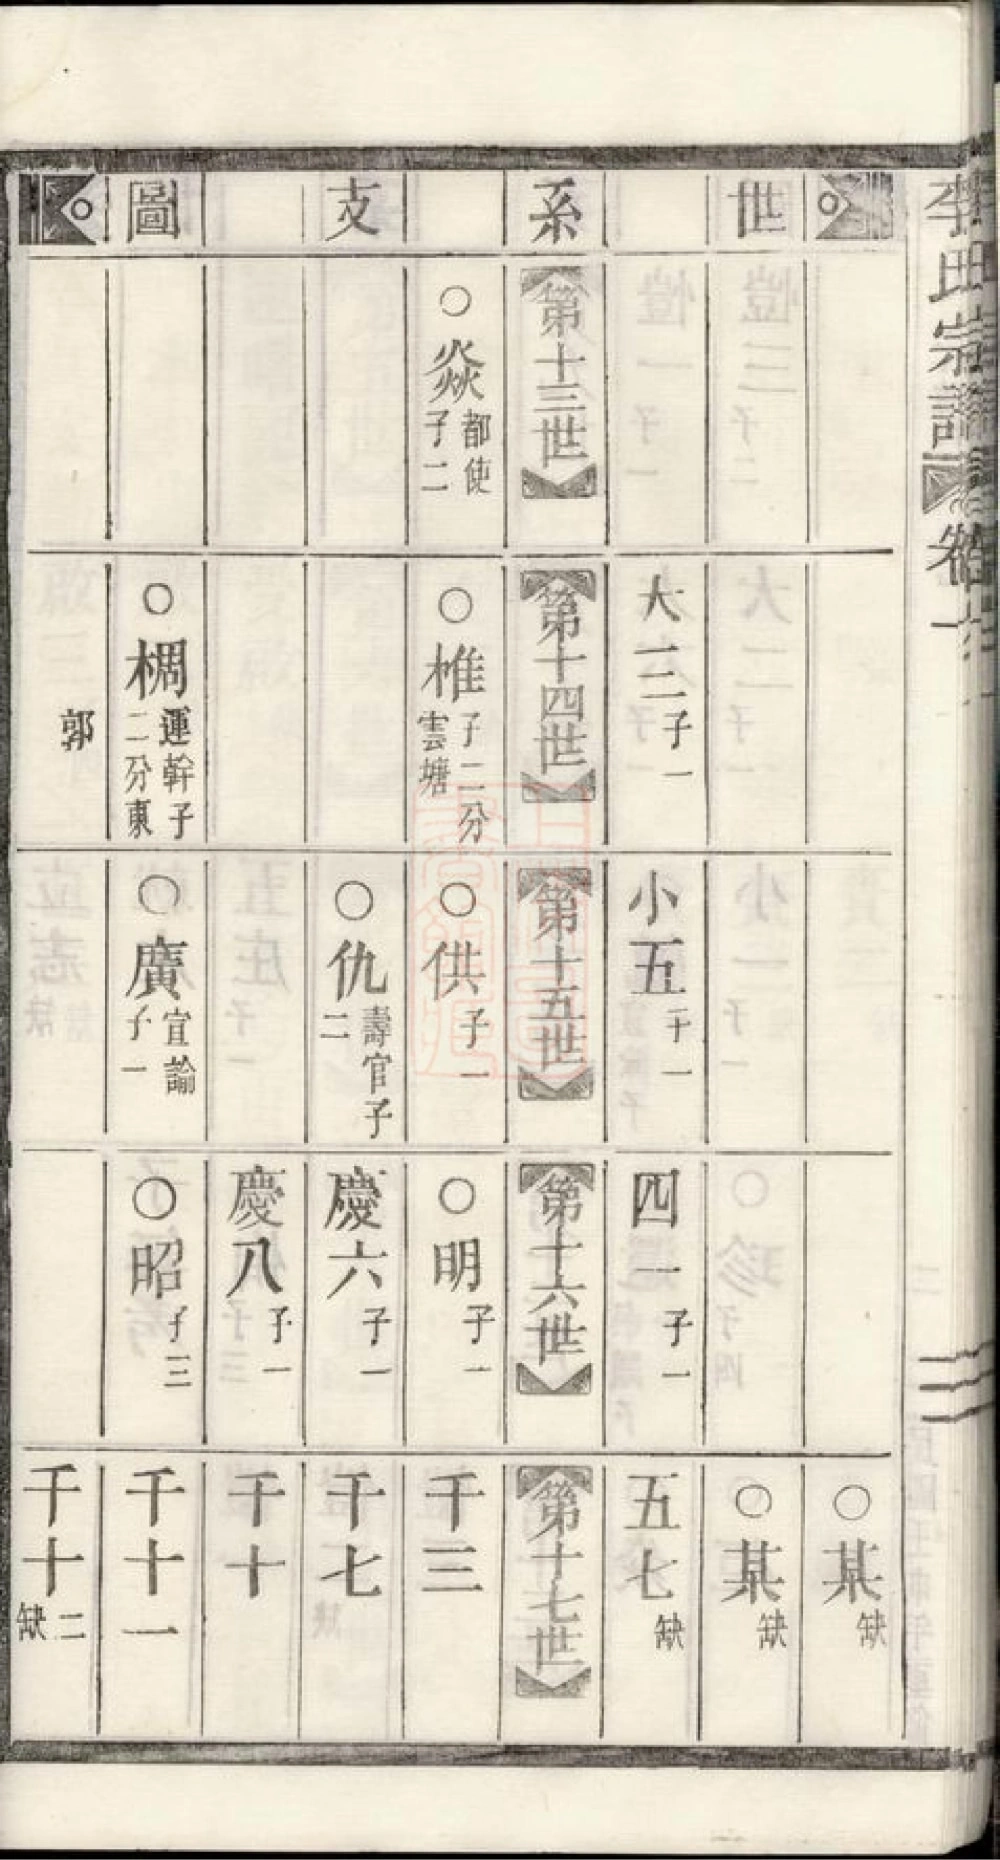 李氏宗譜 卷一
世系支圖
某缺
某缺
大一二子一
小五子一
四一子一
五七缺
第十三世
第十四世
第十五世
第十六世
第十七世
焱都使子二
椎子二分雲塘
供子一
明子一
千三
仇壽官子二
慶六子一
千七
慶八子一
千十
椆運幹子二分東
廣宣諭子一
昭子三
千十一
郭
千十二缺